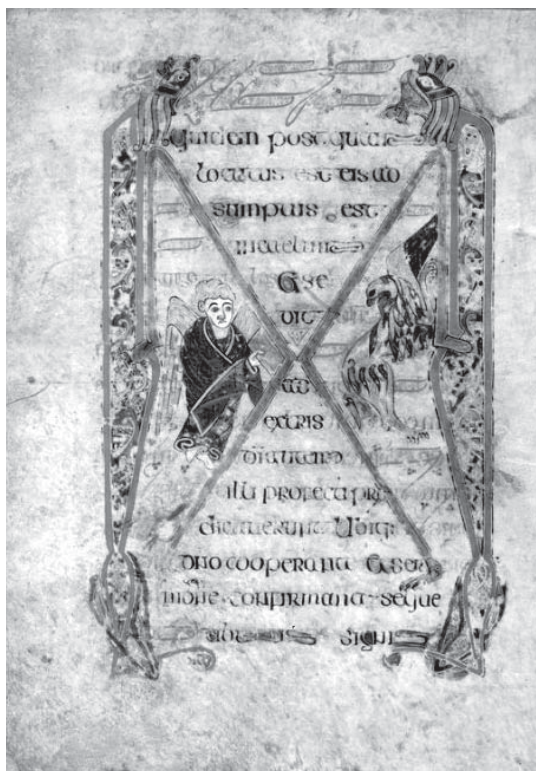 quidem postquam
locutus est eis ad
sumptus est
in caelum
& se
dit
ad
extris
autem
illi profecti prae
dicauerunt ubiq:
dno cooperante & ser
mone confirmante seque
signis